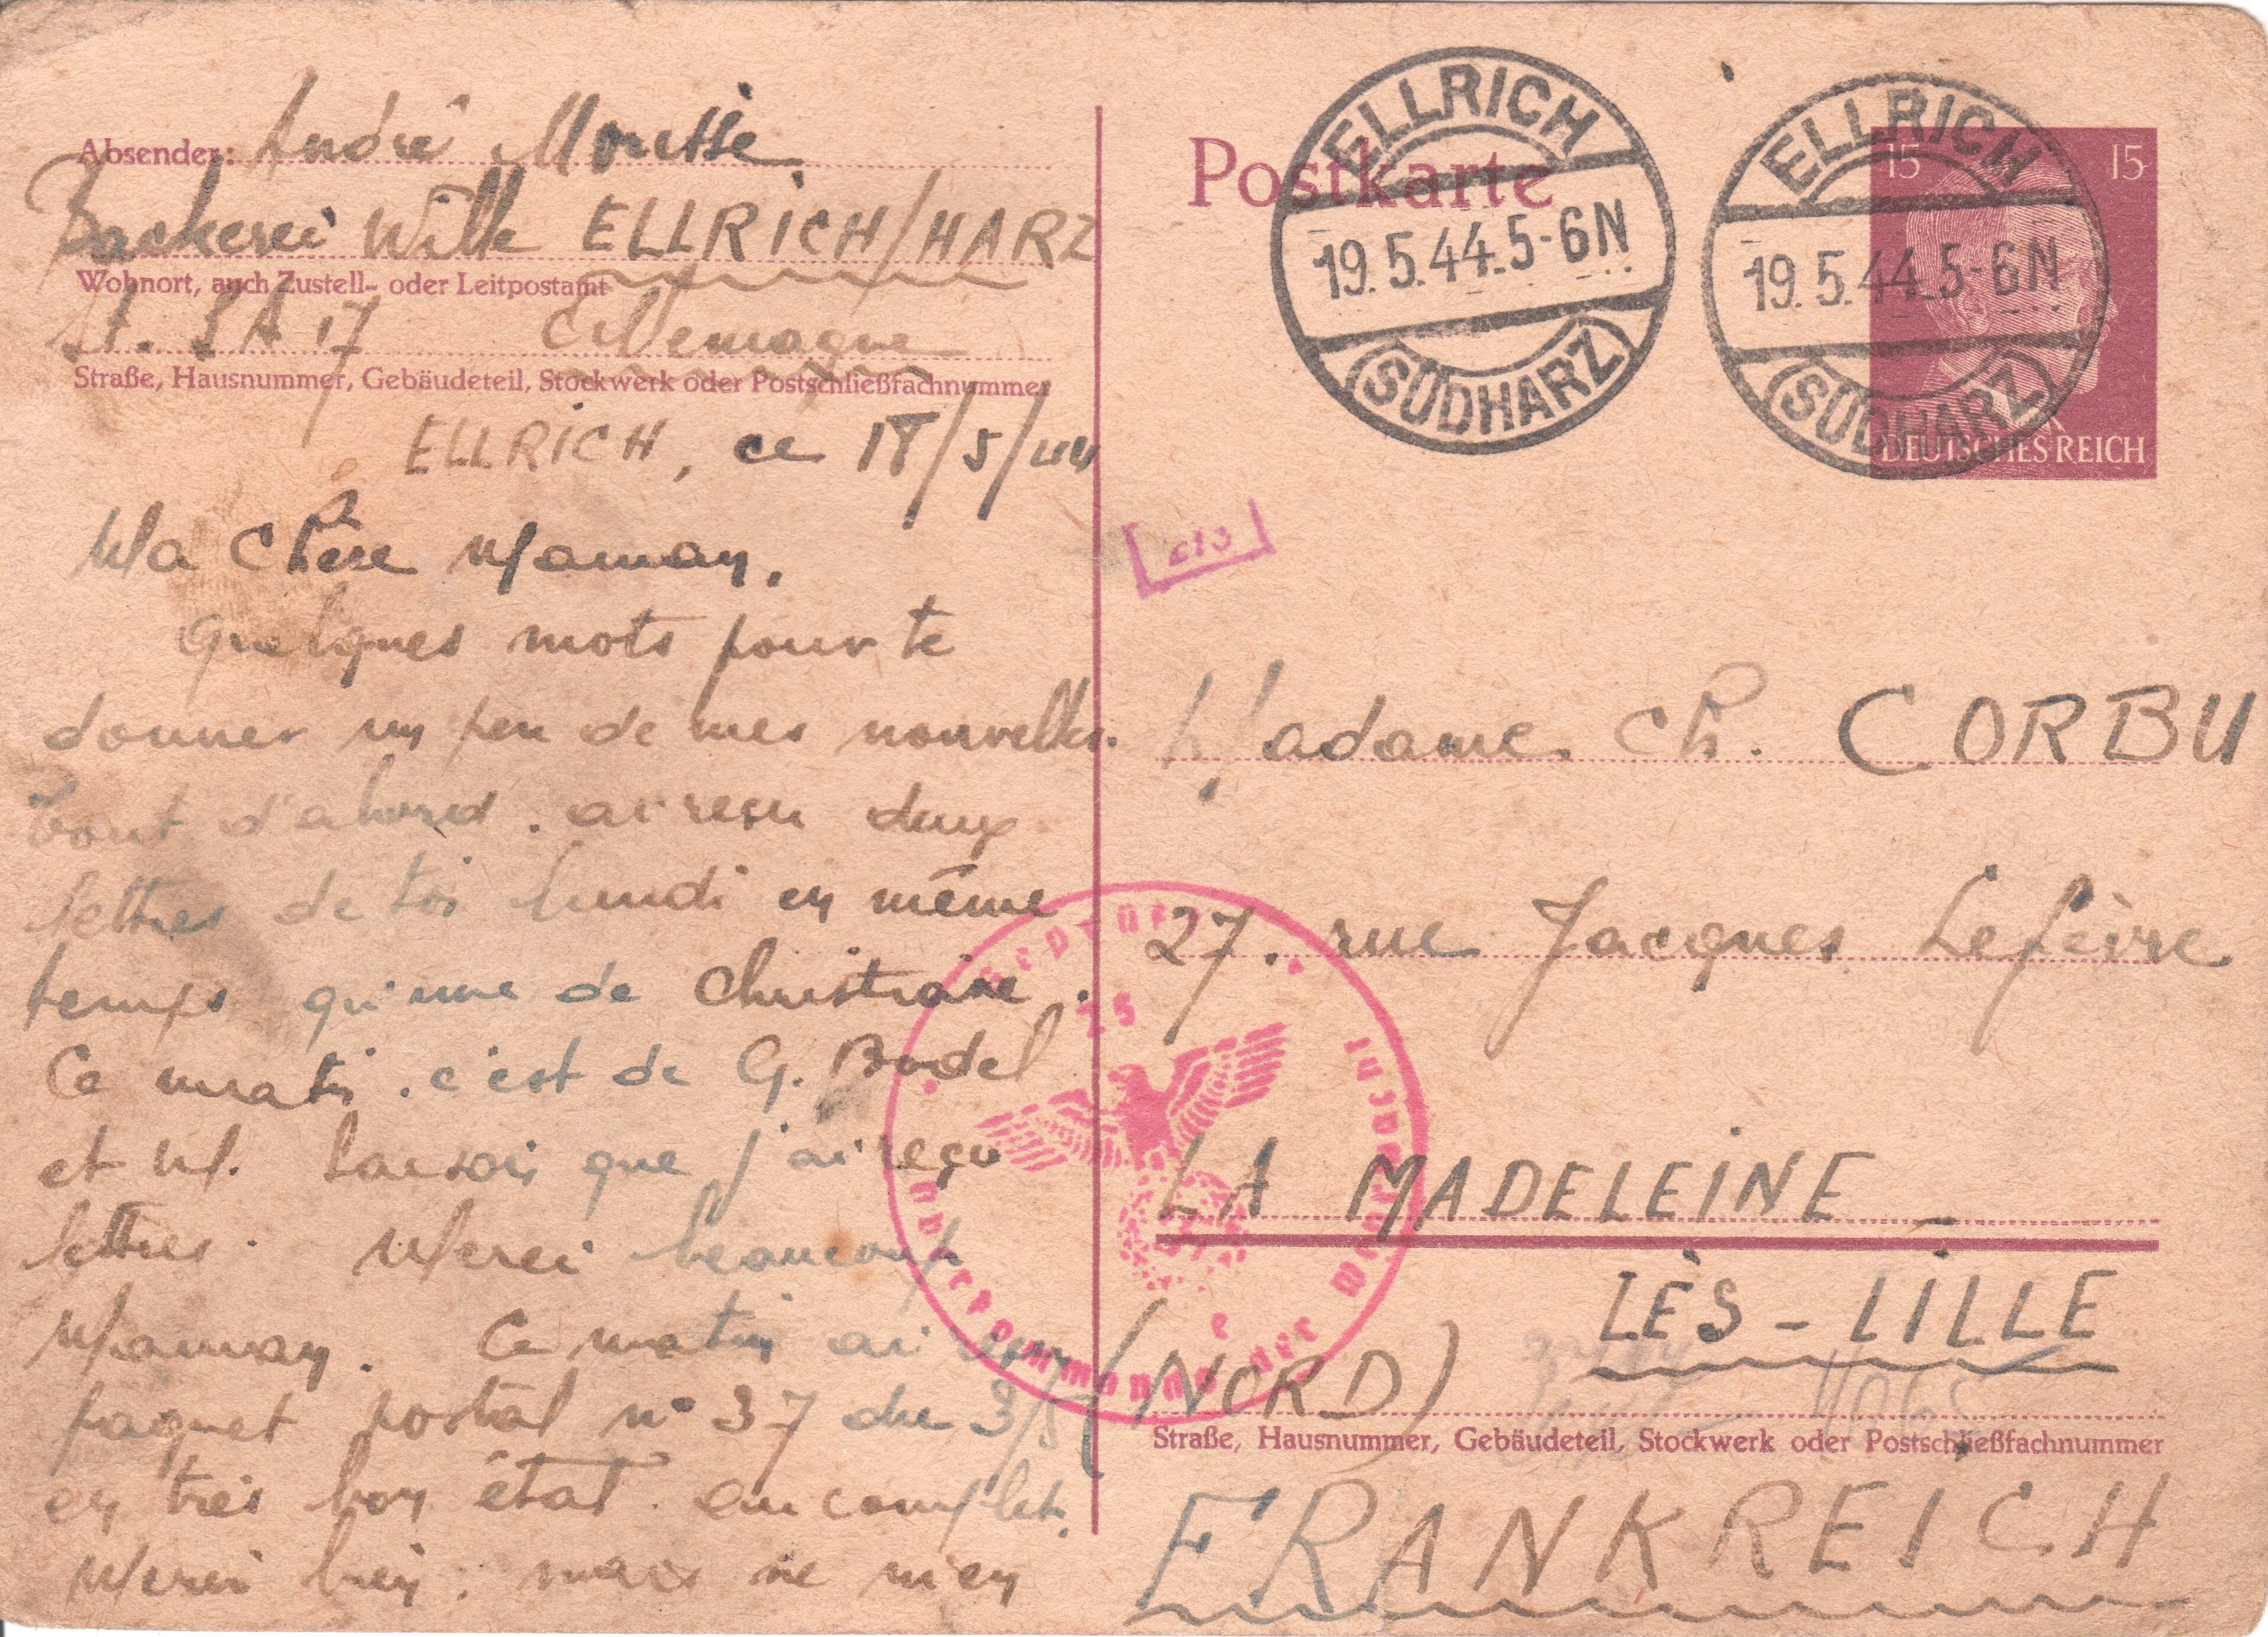 Absender: André
Backerei Wilk ELLRICH/HARZ
Wohnort, auch Zustell- oder Leitpostamt
17 Allemagne
Straße, Hausnummer, Gebäudeteil, Stockwerk oder Postschließfachnummer
ELLRICH, ce 18/5/44
Ma chère Maman,
Quelques mots pour te
donner un peu de mes nouvelles.
Tout d'abord. ai reçu deux
lettres de toi lundi en même
temps qu'une de Christiane.
Ce matin. c'est de G. Bodel
et M. que j'ai reçu
lettres. Merci beaucoup
Maman. Ce matin ai reçu
paquet postal n° 37 du 3/5
en très bon état. au complet.
Merci bien; mais ne m'en
Postkarte
ELLRICH
19.5.44.5-6N
(SÜDHARZ)
ELLRICH
19.5.44.5-6N
(SÜDHARZ)
15 15
DEUTSCHES REICH
Madame Ch. CORBU
27. rue Jacques Lefèvre
LA MADELEINE -
LÈS-LILLE
(NORD)
Straße, Hausnummer, Gebäudeteil, Stockwerk oder Postschließfachnummer
FRANKREICH
Geprüft
Oberkommando der Wehrmacht
e